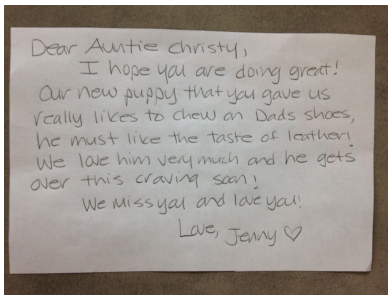 Dear Auntie Christy,
I hope you are doing great!
Our new puppy that you gave us
really likes to chew on Dads shoes,
he must like the taste of leather!
We love him very much and he gets
over this craving soon!
We miss you and love you!
Love, Jenny ♡